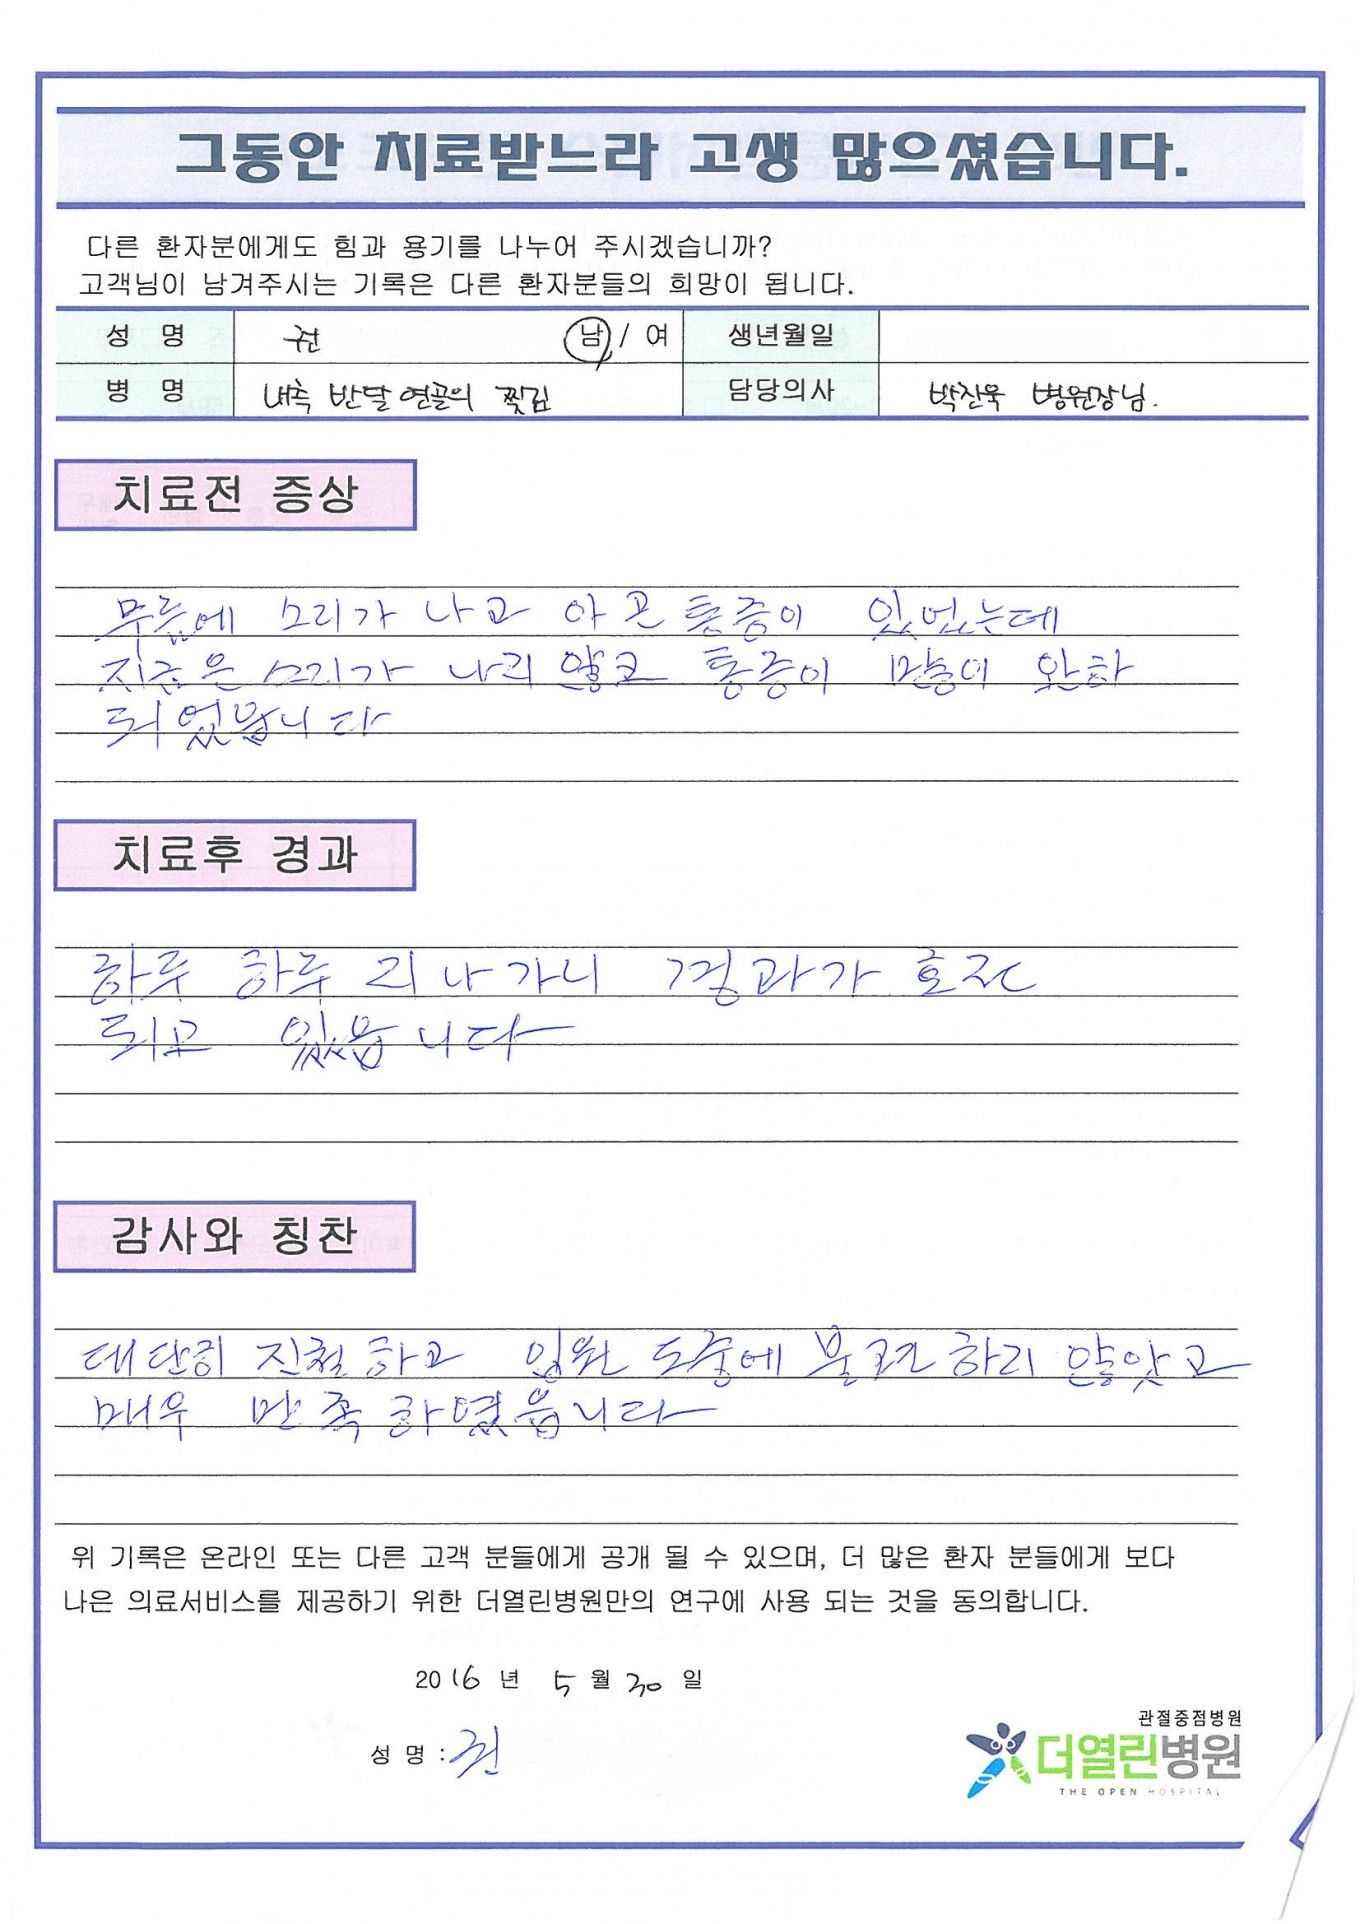 그동안 치료받느라 고생 많으셨습니다.
다른 환자분에게도 힘과 용기를 나누어 주시겠습니까?
고객님이 남겨주시는 기록은 다른 환자분들의 희망이 됩니다.
성 명 권 남 / 여 생년월일
병 명 내측 반달연골의 찢김 담당의사 박찬욱 병원장님.
치료전 증상
무릎에 소리가 나고 아픈 통증이 있었는데
지금은 소리가 나지 않고 통증이 많이 완화
되었읍니다
치료후 경과
하루 하루 지나가니 경과가 호전
되고 있읍니다
감사와 칭찬
대단히 친절하고 입원 도중에 불편하지 않앗고
매우 만족하였읍니다
위 기록은 온라인 또는 다른 고객 분들에게 공개 될 수 있으며, 더 많은 환자 분들에게 보다
나은 의료서비스를 제공하기 위한 더열린병원만의 연구에 사용 되는 것을 동의합니다.
2016 년 5 월 30 일
성 명 : 권
관절중점병원
더열린병원
THE OPEN HOSPITAL